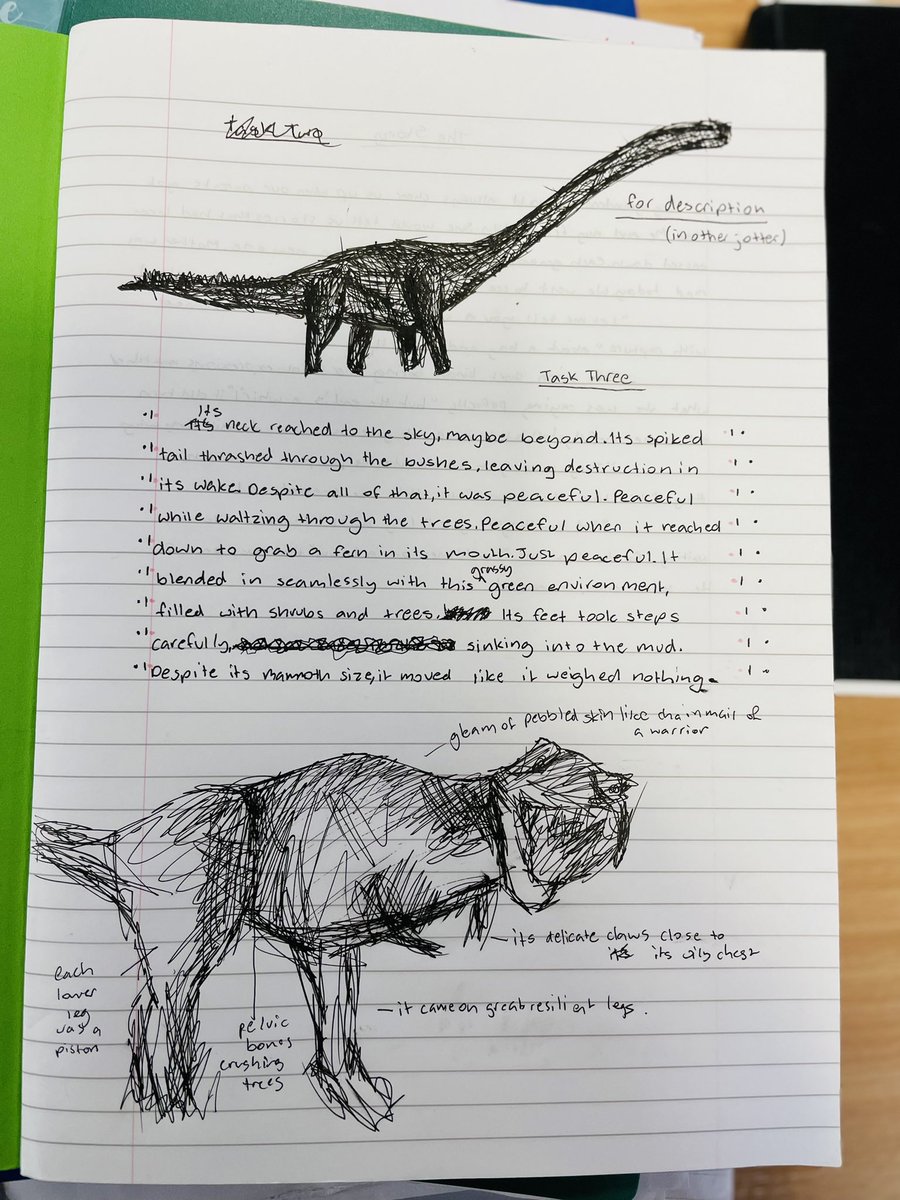 for description
(in other jotter)
Task Three
Its
neck reached to the sky, maybe beyond. Its spiked
tail thrashed through the bushes, leaving destruction in
its wake. Despite all of that, it was peaceful. Peaceful
while waltzing through the trees. Peaceful when it reached
down to grab a fern in its mouth. Just peaceful. It
blended in seamlessly with this grassy green environment,
filled with shrubs and trees. Its feet took steps
carefully, sinking into the mud.
Despite its mammoth size, it moved like it weighed nothing.
gleam of pebbled skin like chainmail of
a warrior
its delicate claws close to
its oily chest
it came on great resilient legs.
each
lower
leg
was a
piston
pelvic
bones
crushing
trees